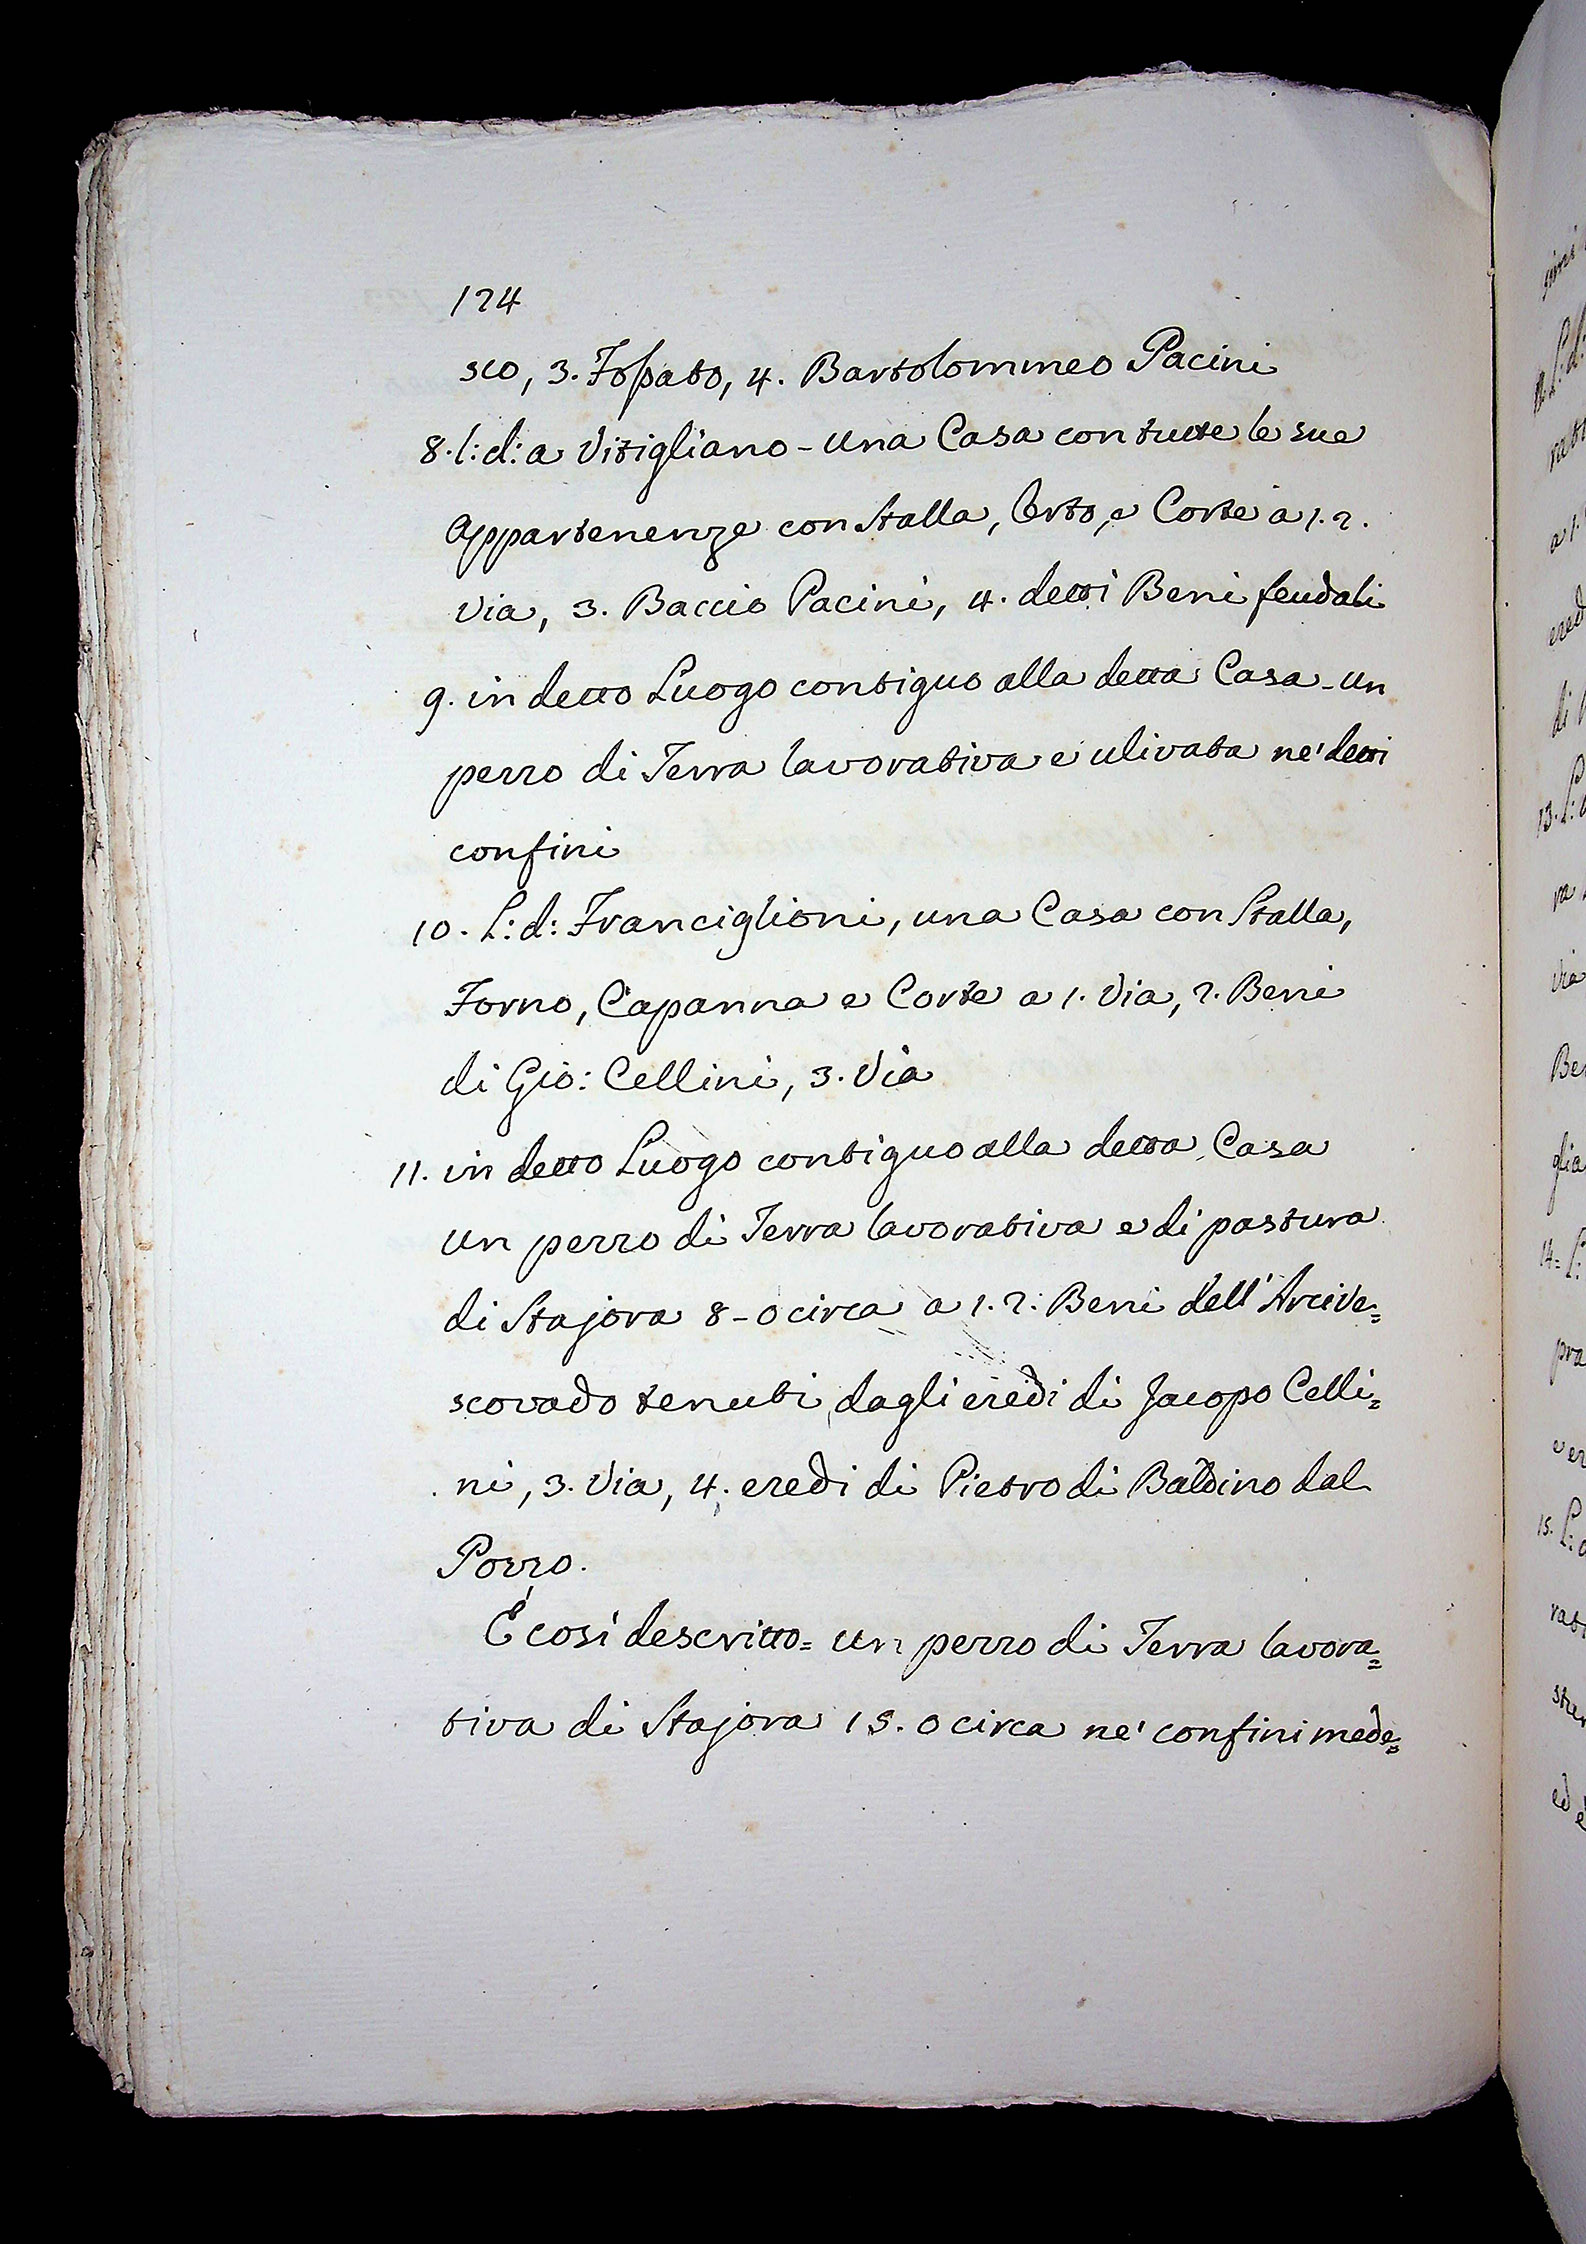 124
sco, 3. Fossato, 4. Bartolommeo Pacini
8. l: d: a Vitigliano - una Casa con tutte le sue
Appartenenze con Stalla, Orto, e Corte a 1. 2.
Via, 3. Baccio Pacini, 4. detti Beni feudali
9. in detto Luogo contiguo alla detta Casa - un
pezzo di Terra lavorativa e ulivata ne' detti
confini
10. L: d: Franciglioni, una Casa con Stalla,
Forno, Capanna e Corte a 1. Via, 2. Beni
di Gio: Cellini, 3. Via
11. in detto Luogo contiguo alla detta Casa
un pezzo di Terra lavorativa e di pastura
di Stajora 8 - 0 circa a 1. 2: Beni dell' Arcive=
scovado tenuti dagli eredi di Jacopo Celli=
ni, 3. Via, 4. eredi di Pietro di Baldino dal
Pozzo.
È così descritto = un pezzo di Terra lavora=
tiva di Stajora 15. 0 circa ne' confini mede=